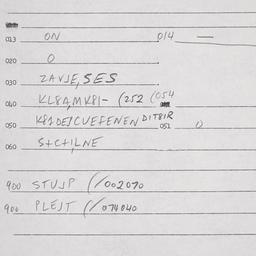 013 ON 014 —
020 O
030 ZAVJE, SES
040 KL8A, MK81- (252 (054
050 K81DE7CUEFENEN DIT8IR 051 O
060 S+C+1LNE
900 STUJP (/002070
900 PLEJT (/074040